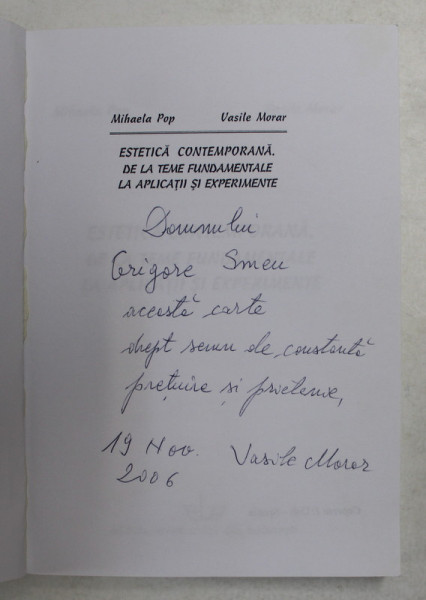 Mihaela Pop Vasile Morar
ESTETICĂ CONTEMPORANĂ.
DE LA TEME FUNDAMENTALE
LA APLICAȚII ȘI EXPERIMENTE
Domnului
Grigore Smeu
această carte
drept semn de constantă
prețuire și prietenie,
19 Nov. Vasile Morar
2006